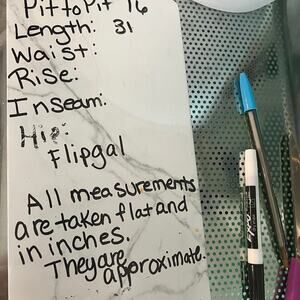 Pit to Pit 16
Length: 31
Waist:
Rise:
Inseam:
Hip:
Flipgal
All measurements
are taken flat and
in inches.
They are
approximate.
EXPO